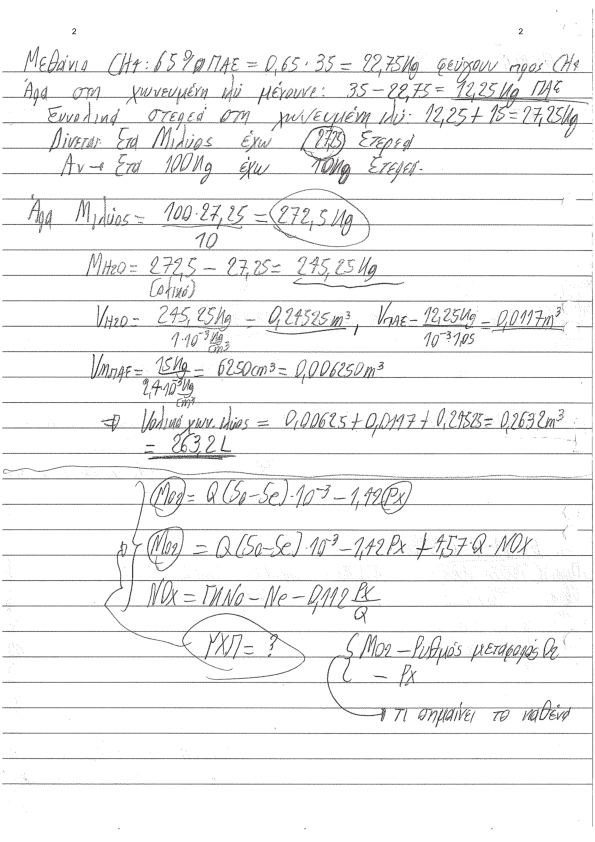 2 2
Μεθάνιο CH4: 65% ΠΑΕ = 0,65·35 = 22,75Kg φεύγουν προς CH4
Άρα στη χωνευμένη ιλύ μένουν: 35-22,75 = 12,25Kg ΠΑΕ
Συνολικά στερεά στη χωνευμένη ιλύ: 12,25+15=27,25Kg
Δίνεται: Στα Μιλύος έχω 27,25 Στερεά
Αν → Στα 100Kg έχω 10Kg Στερεά.
Άρα Μιλύος = 100·27,25 / 10 = 272,5Kg
MH2O = 272,5 - 27,25 = 245,25Kg
(ολικό)
VH2O = 245,25Kg / 1·10^-3 Kg/cm³ = 0,24525m³, VΠΑΕ = 12,25Kg / 10^-3·1,05 = 0,0117m³
VΜΠΑΕ = 15Kg / 2,4·10^-3 Kg/cm³ = 6250cm³ = 0,006250m³
⇒ Vολικό χων. ιλύος = 0,00625+0,0117+0,24525 = 0,2632m³
= 263,2L
MO2 = Q(So-Se)·10^-3 - 1,42Px
MO2 = Q(So-Se)·10^-3 - 1,42Px + 4,57·Q·NOx
NOx = TKNo - Ne - 0,112 Px/Q
ΡΧΠ = ?
MO2 - Ρυθμός μεταφοράς O2
- Px
→ τι σημαίνει το καθένα